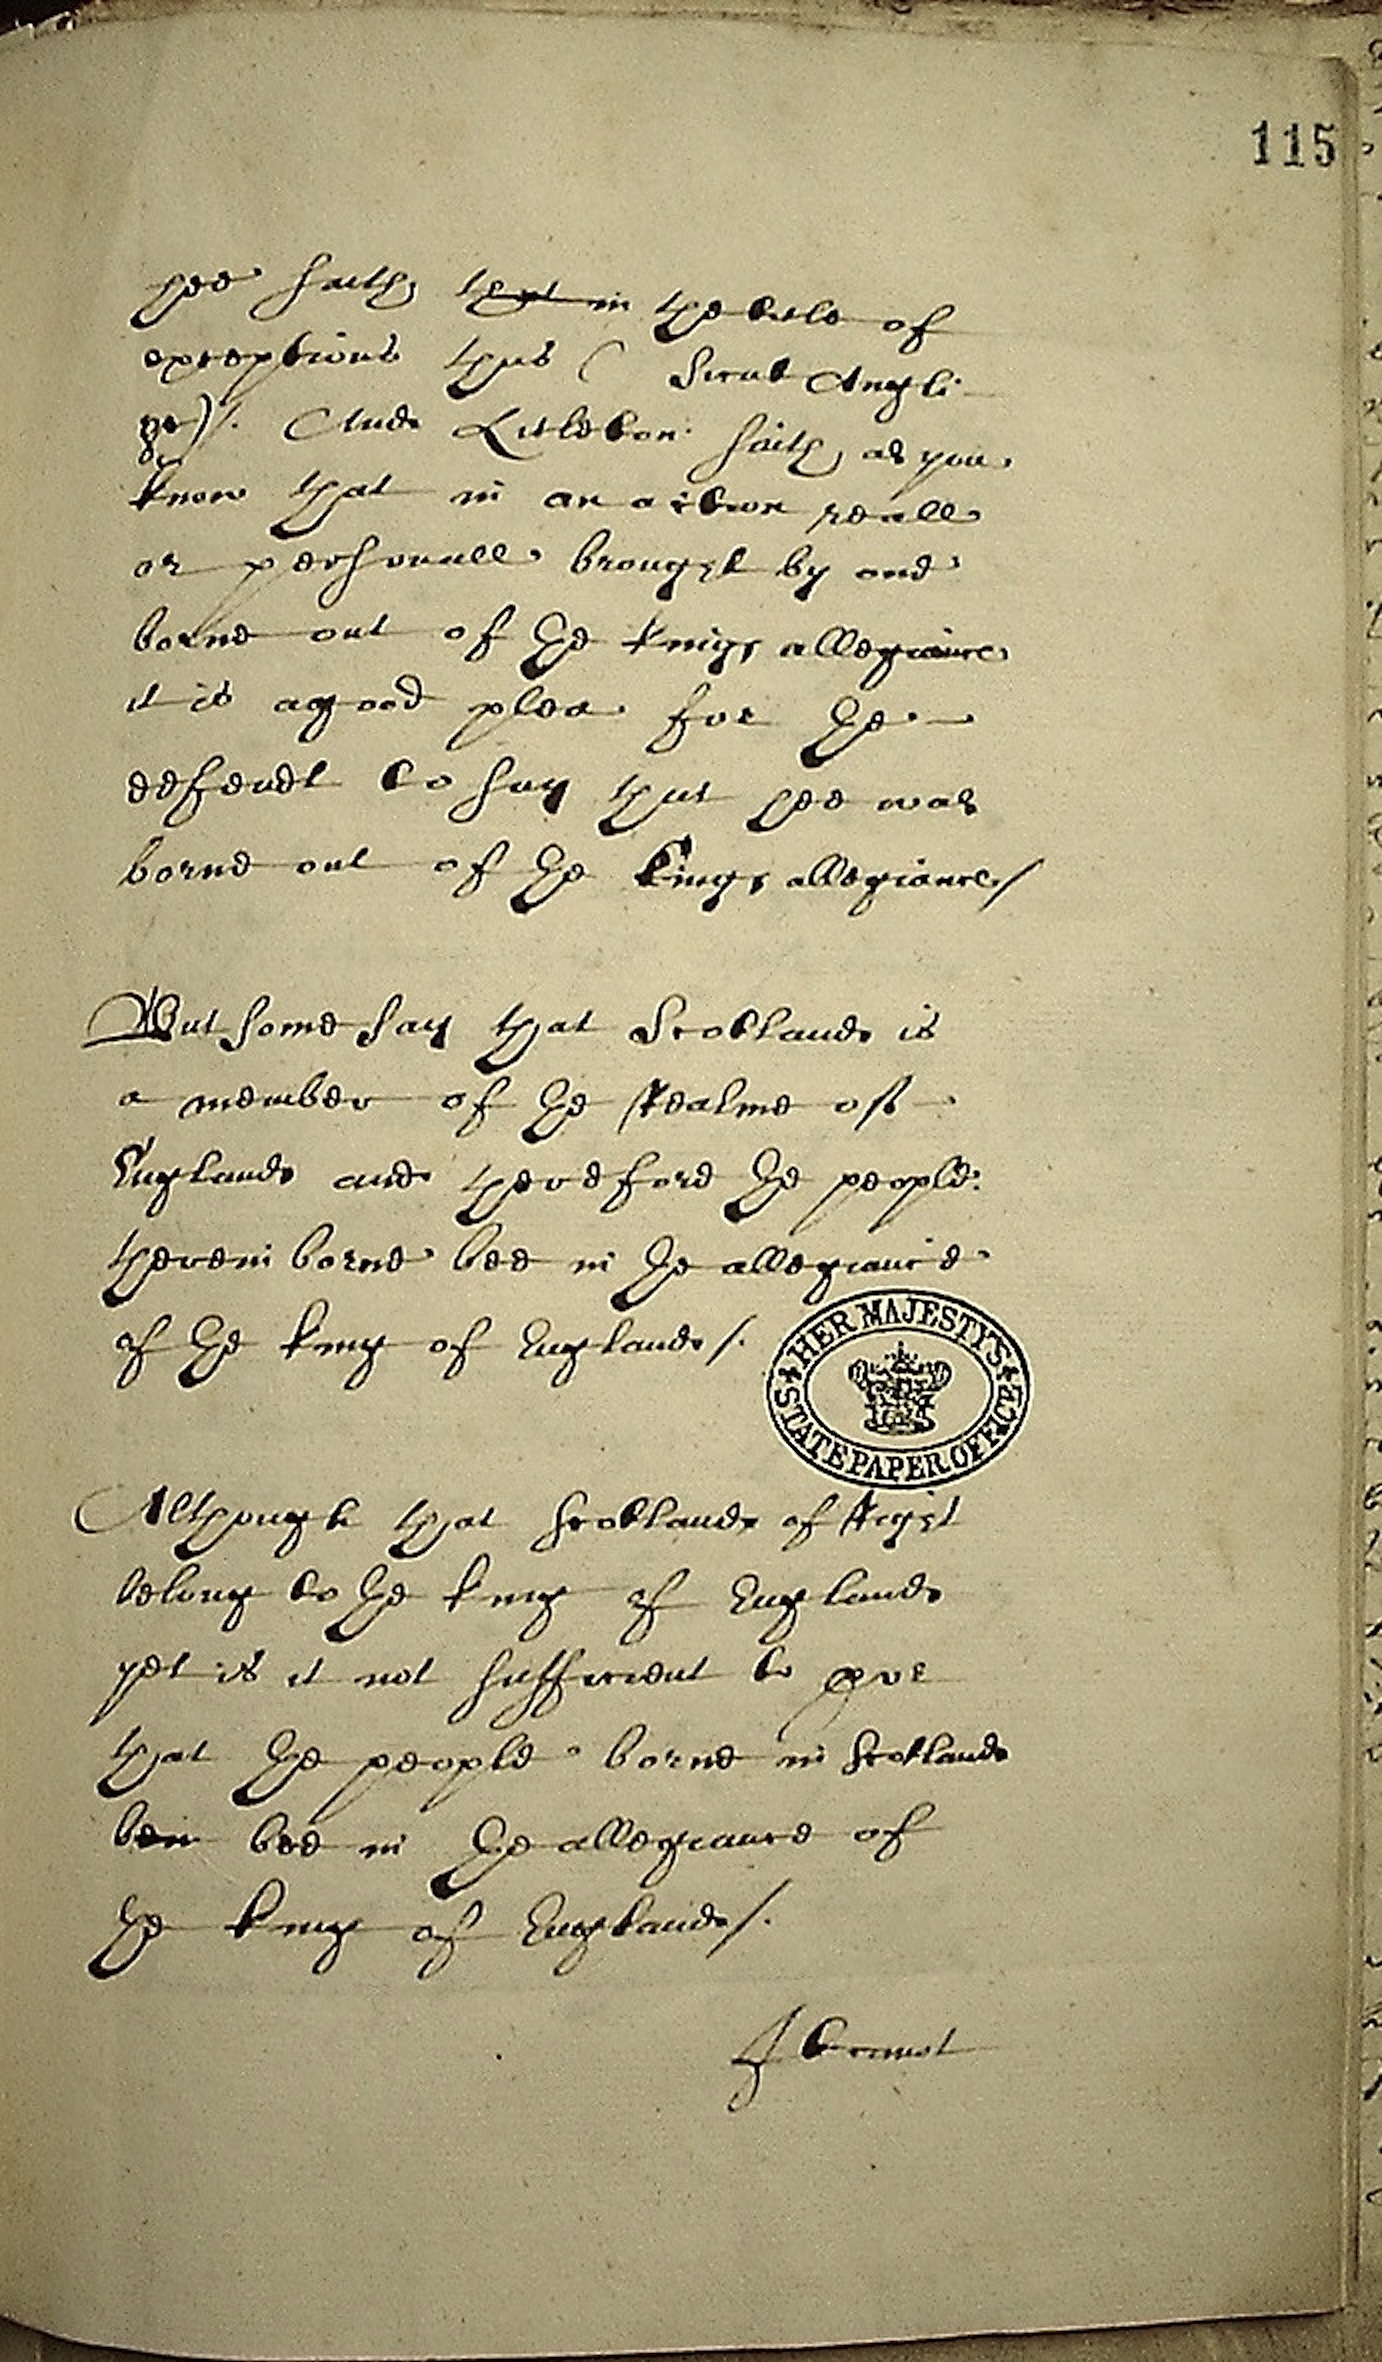 115
hee saith, that in the title of
exceptions thus ( Sicut Angli
ge) /. And Litleton saith, as you
know that in an action reall
or personall brought by one
borne out of the kings allegiance
it is a good plea for the
defendt to say that hee was
borne out of the Kings allegiance /
But some say that Scotlande is
a member of the Realme of
Englande and therefore the people
therein borne bee in the allegiance
of the king of Englande /.
HER MAJESTY'S
STATE PAPER OFFICE
Although that Scotlande of Right
belong to the king of Englande
yet is it not sufficient to prove
that the people borne in Scotlande
bee in the allegiance of
the king of Englande /.